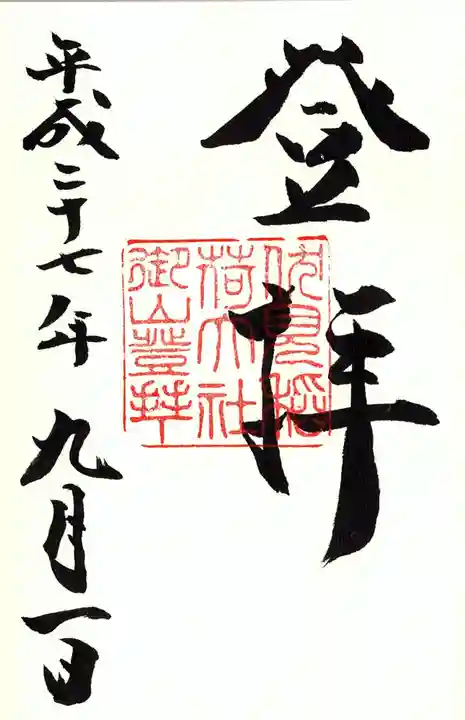 登拝
伏見稲
荷大社
御山登拝
平成二十七年 九月一日